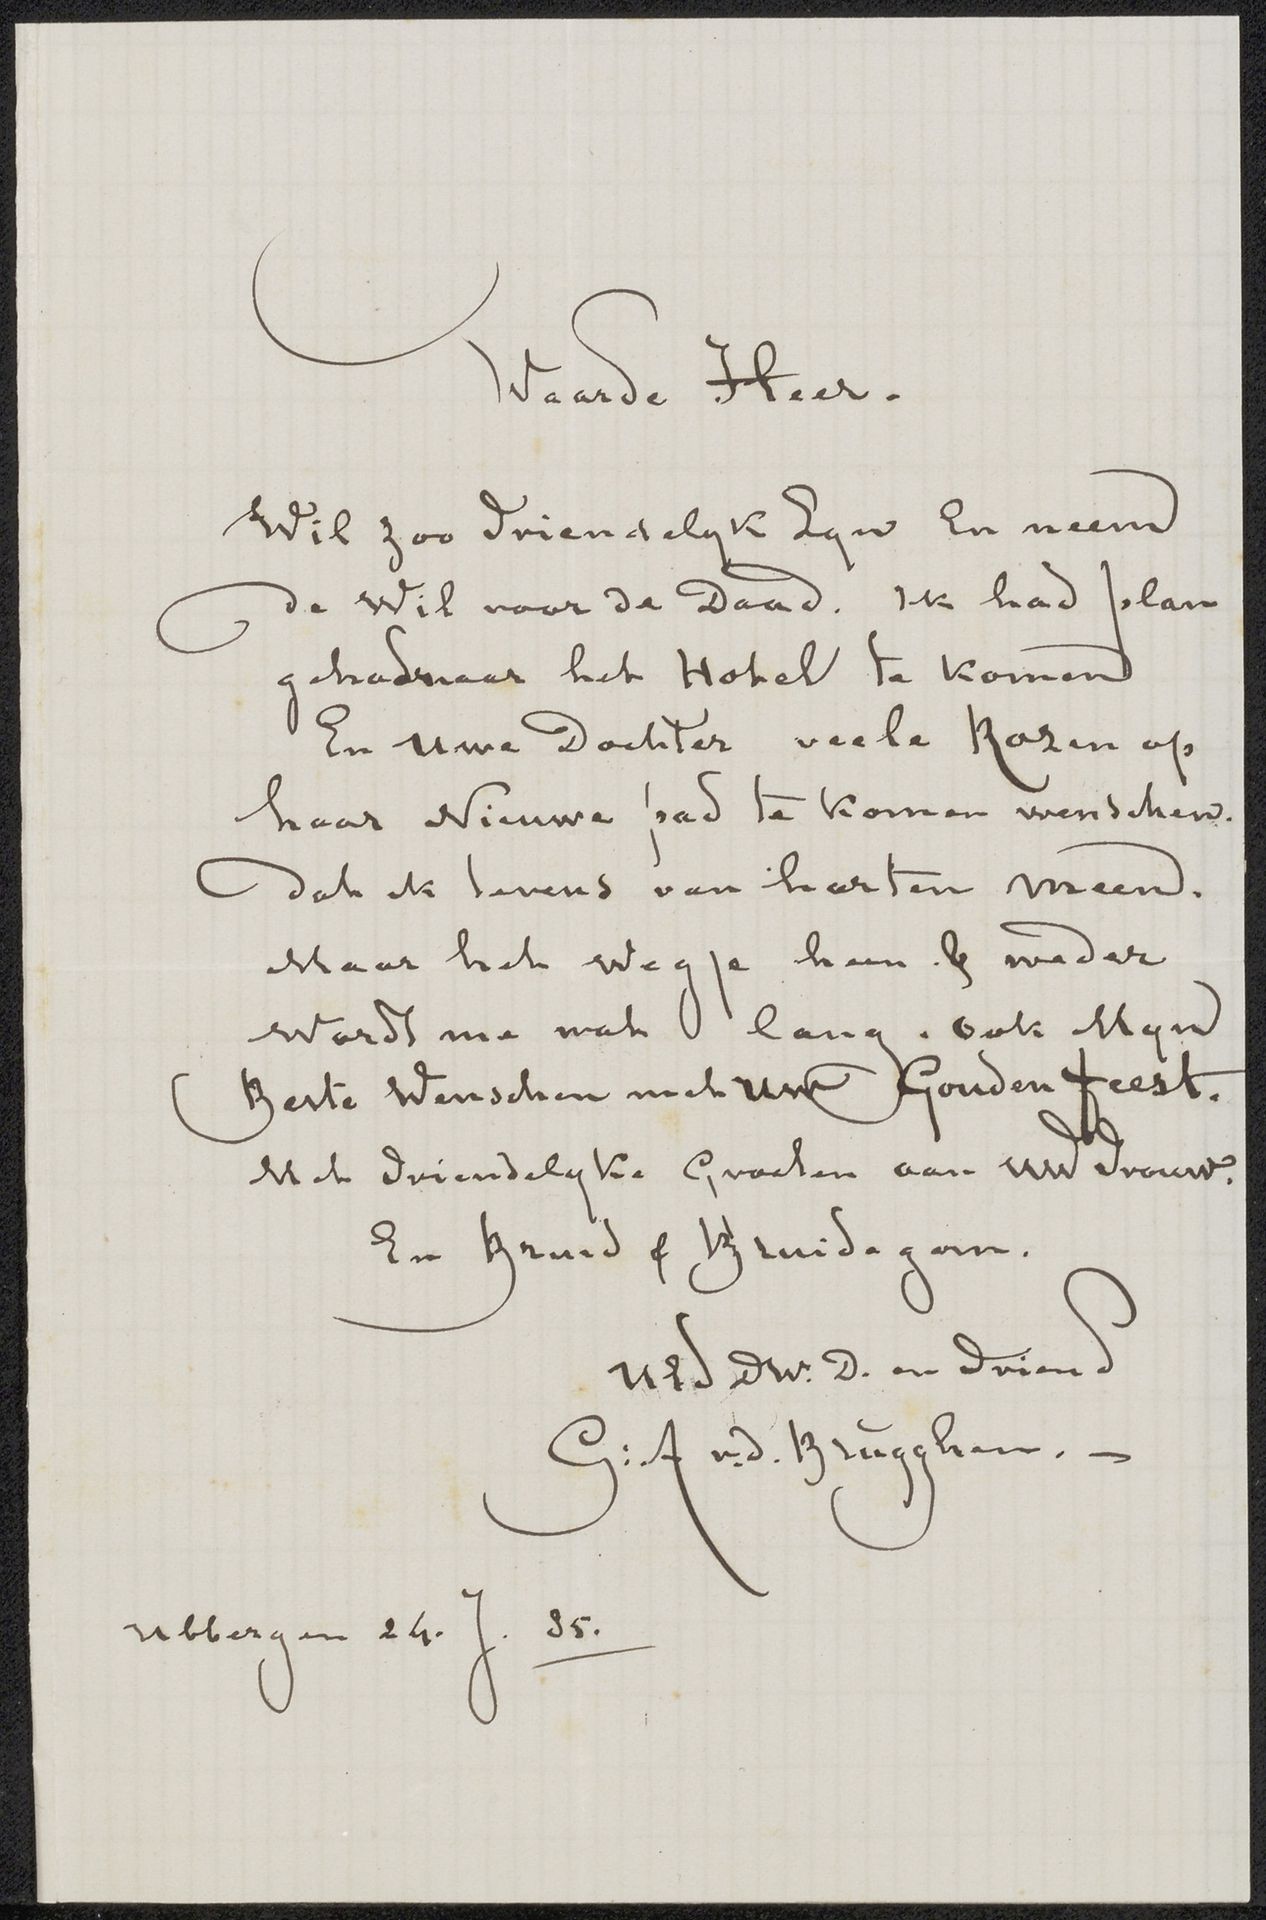 Waarde Heer.
Wil zoo vriendelyk Zyn En neem
de Wil voor de Daad. Ik had plan
gehad naar het Hotel te komen
En Uwe Dochter veele Rozen op
haar Nieuwe pad te komen wenschen.
dat ik tevens van harten meen.
Maar het wegje heen & weder
Wordt me wat lang. Ook Myn
Beste Wenschen met Uw Gouden feest.
Met vriendelyke Groeten aan UW vrouw.
En Bruid & Bruidegom.
UEd DW. D. en vriend
G: A v.d. Brugghen. —
Ubbergen 24. J. 85.